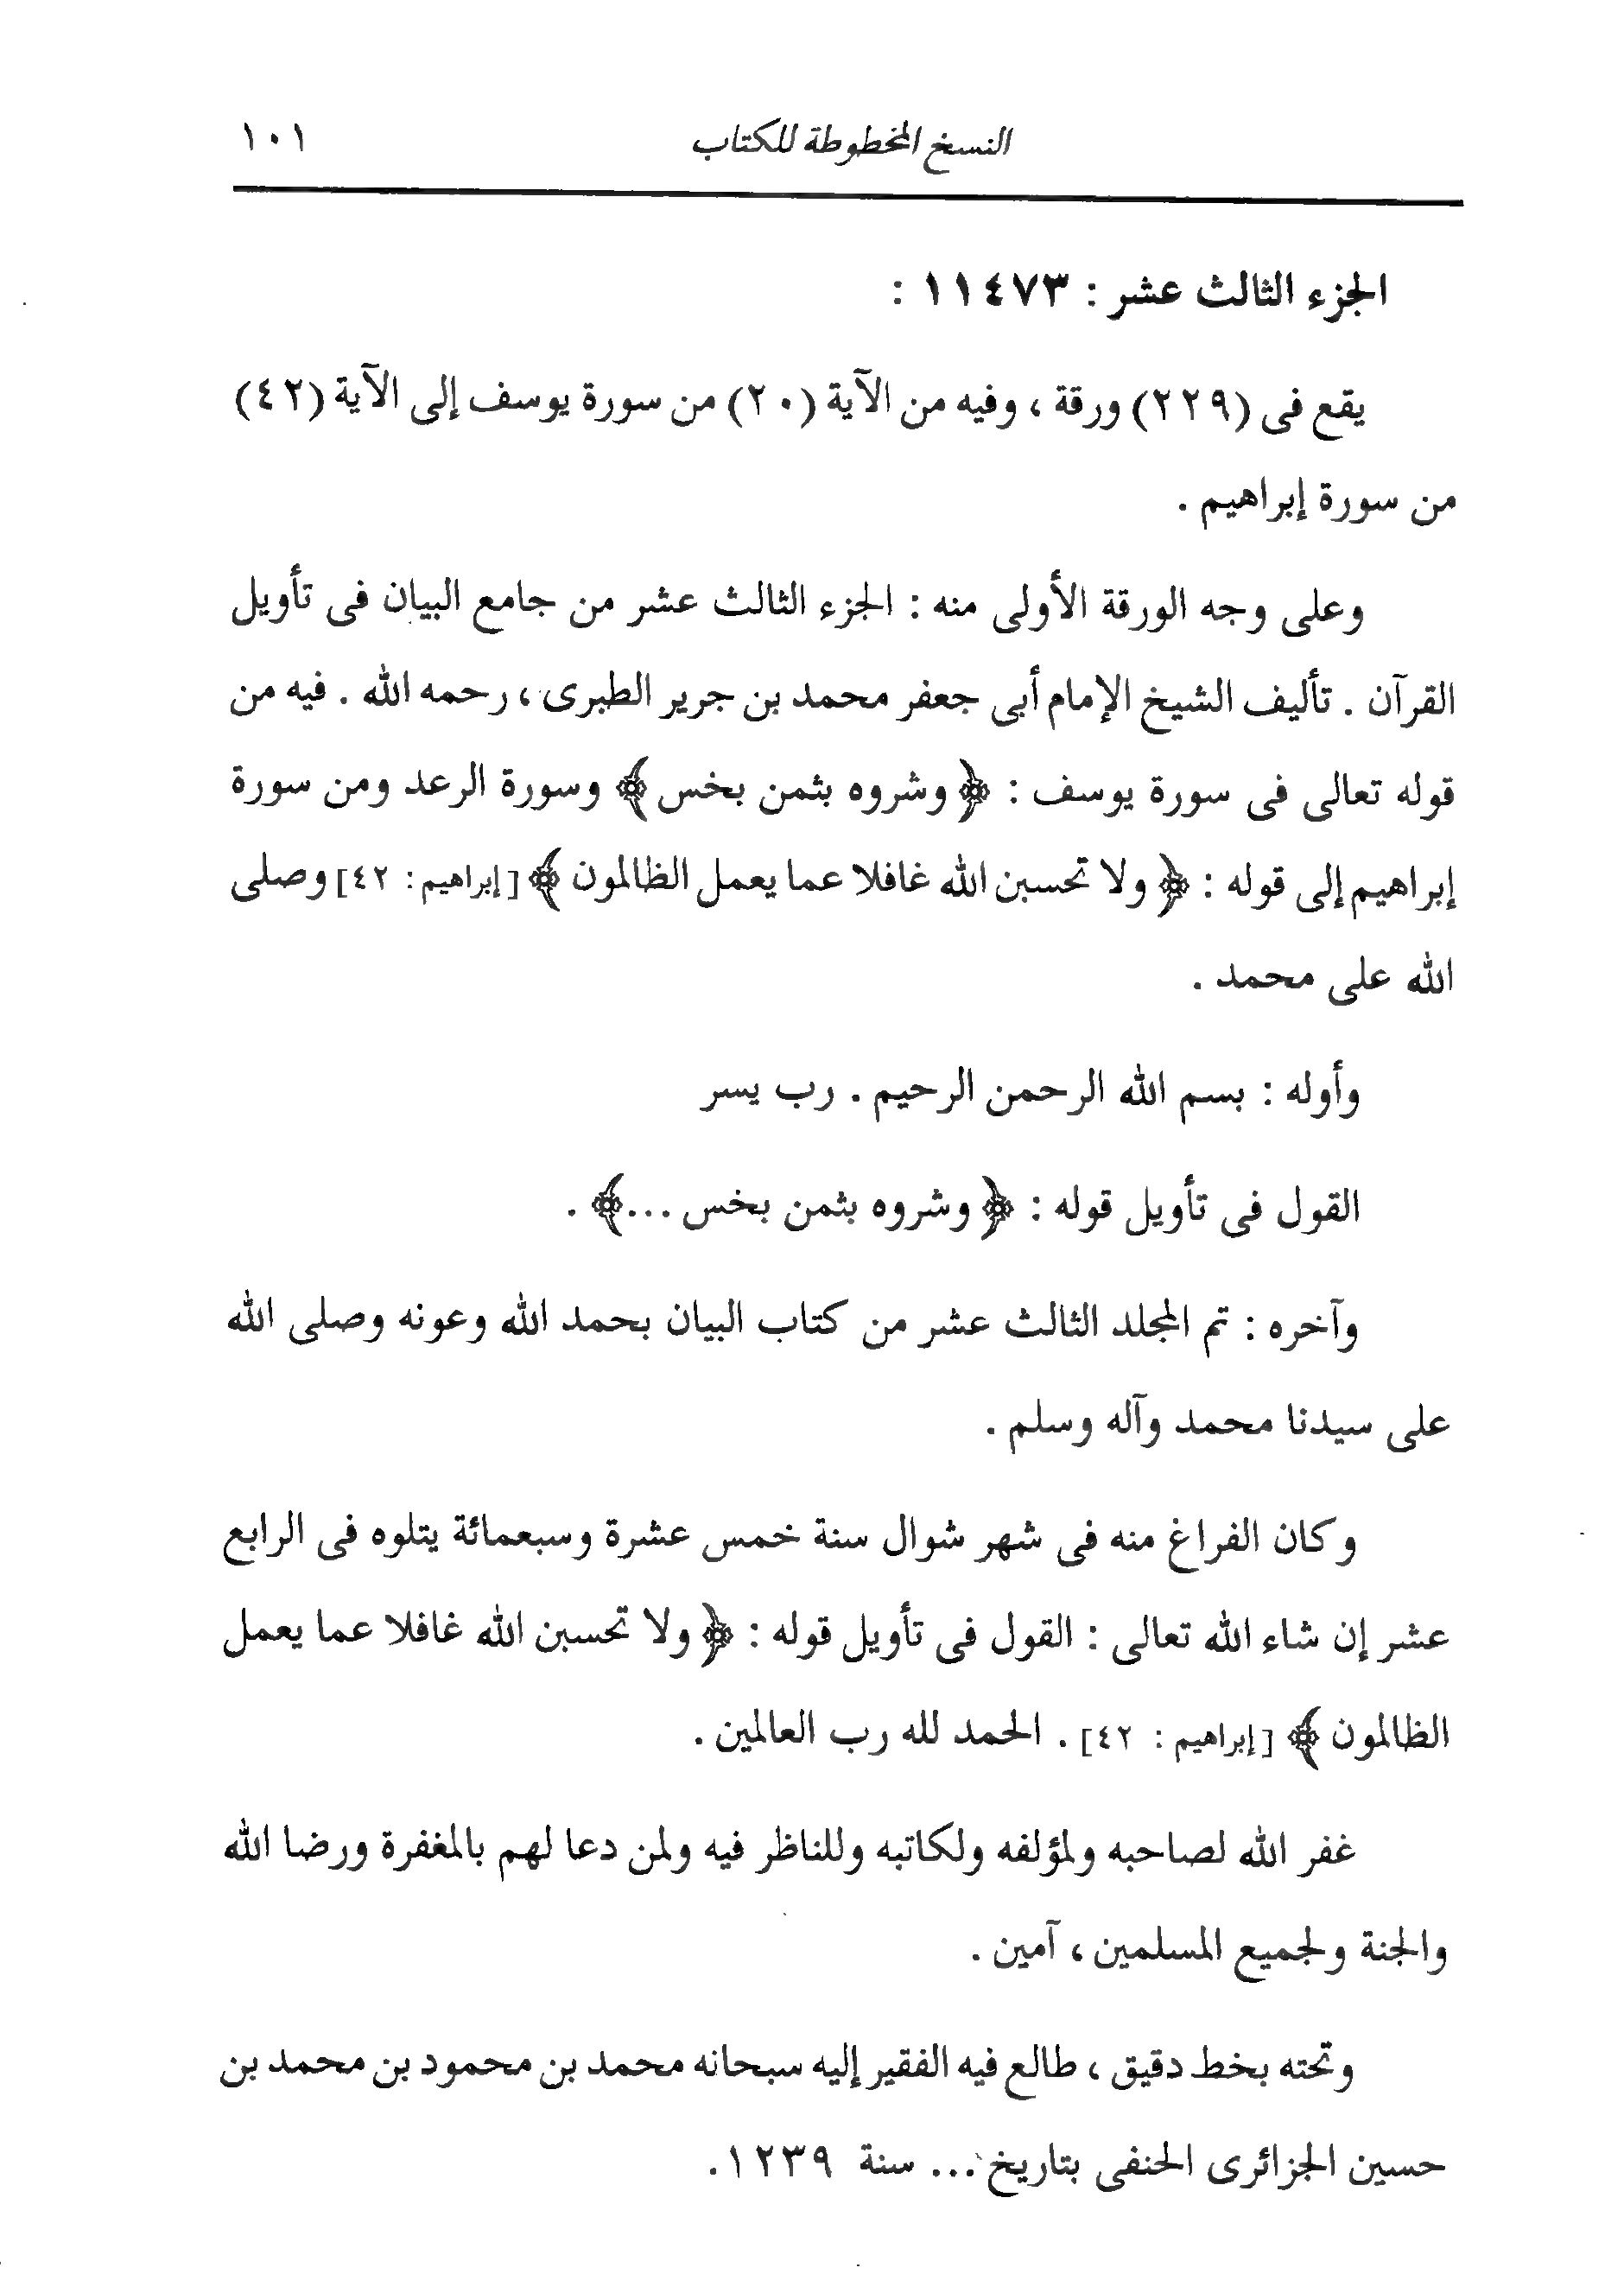 النسخ المخطوطة للكتاب ١٠١
الجزء الثالث عشر : ١١٤٧٣ :
يقع فى (٢٢٩) ورقة ، وفيه من الآية (٢٠) من سورة يوسف إلى الآية (٤٢)
من سورة إبراهيم .
وعلى وجه الورقة الأولى منه : الجزء الثالث عشر من جامع البيان فى تأويل
القرآن . تأليف الشيخ الإمام أبى جعفر محمد بن جرير الطبرى ، رحمه الله . فيه من
قوله تعالى فى سورة يوسف : ﴿وشروه بثمن بخس﴾ وسورة الرعد ومن سورة
إبراهيم إلى قوله : ﴿ولا تحسبن الله غافلا عما يعمل الظالمون﴾ [إبراهيم : ٤٢] وصلى
الله على محمد .
وأوله : بسم الله الرحمن الرحيم . رب يسر
القول فى تأويل قوله : ﴿وشروه بثمن بخس ...﴾ .
وآخره : تم المجلد الثالث عشر من كتاب البيان بحمد الله وعونه وصلى الله
على سيدنا محمد وآله وسلم .
وكان الفراغ منه فى شهر شوال سنة خمس عشرة وسبعمائة يتلوه فى الرابع
عشر إن شاء الله تعالى : القول فى تأويل قوله : ﴿ولا تحسبن الله غافلا عما يعمل
الظالمون﴾ [إبراهيم : ٤٢] . الحمد لله رب العالمين .
غفر الله لصاحبه ولمؤلفه ولكاتبه وللناظر فيه ولمن دعا لهم بالمغفرة ورضا الله
والجنة ولجميع المسلمين ، آمين .
وتحته بخط دقيق ، طالع فيه الفقير إليه سبحانه محمد بن محمود بن محمد بن
حسين الجزائرى الحنفى بتاريخ ... سنة ١٢٣٩.